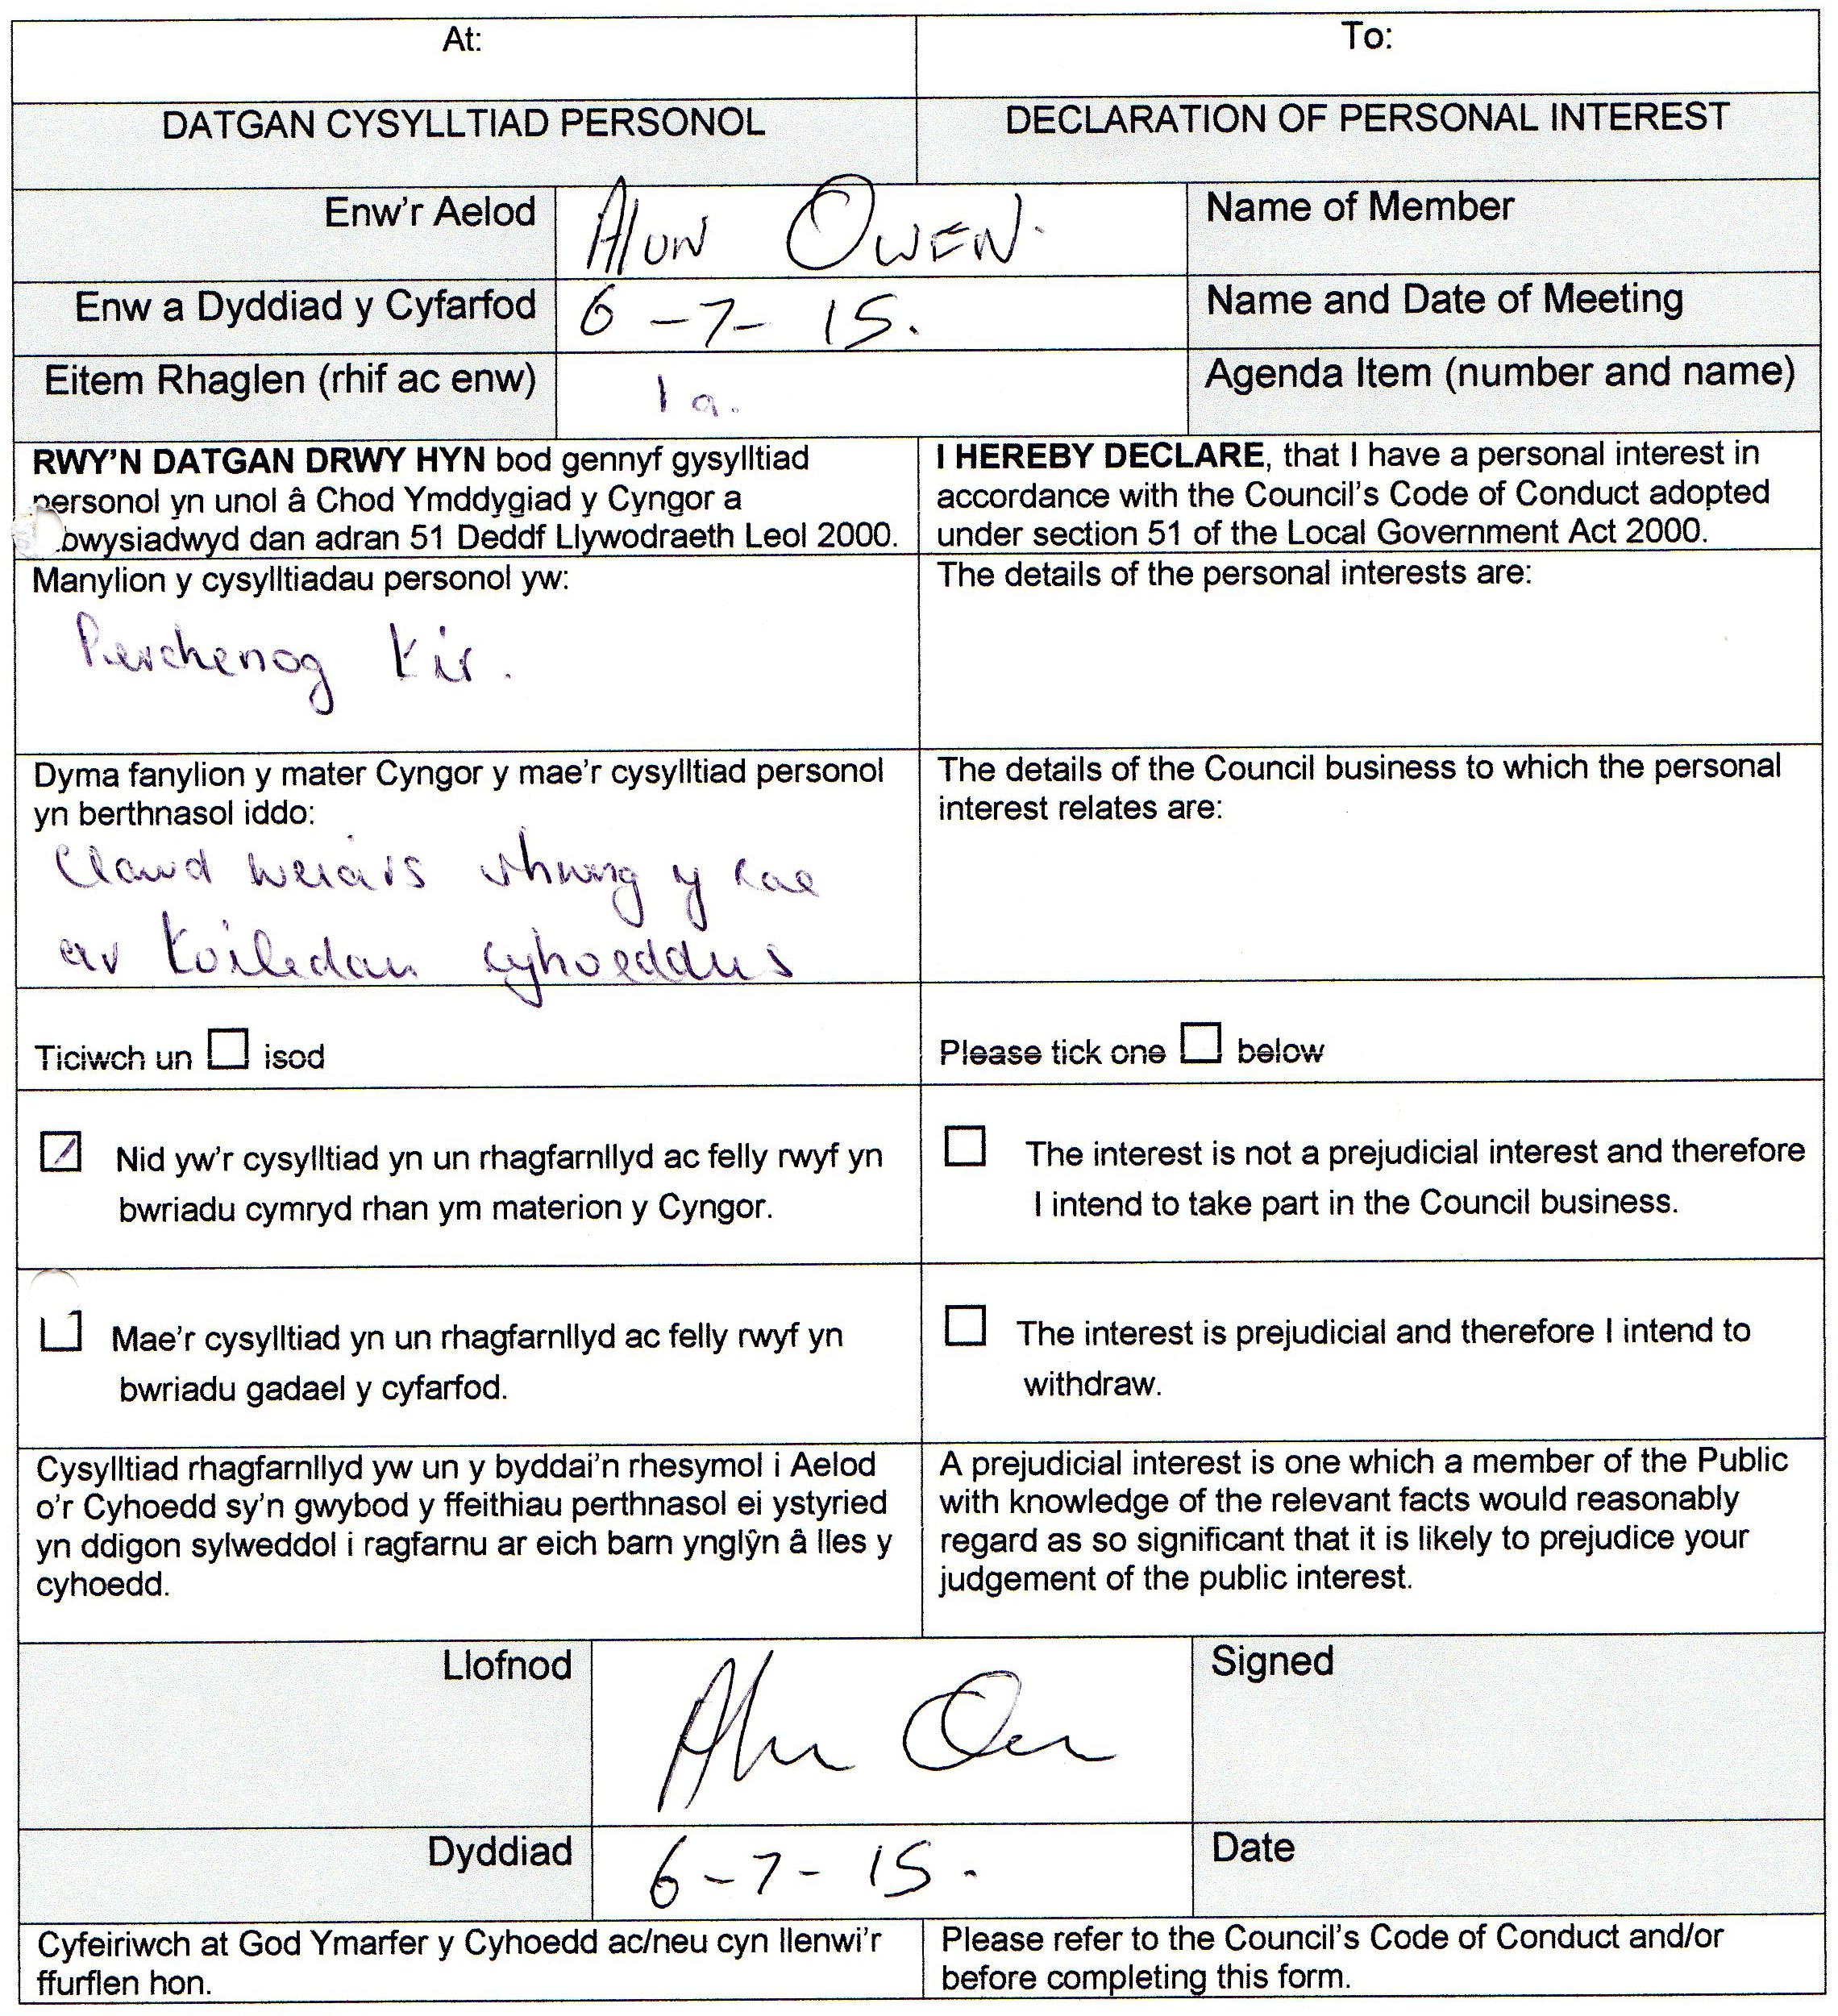 At:
To:
DATGAN CYSYLLTIAD PERSONOL
DECLARATION OF PERSONAL INTEREST
Enw'r Aelod
Alun Owen.
Name of Member
Enw a Dyddiad y Cyfarfod
6-7-15.
Name and Date of Meeting
Eitem Rhaglen (rhif ac enw)
1a.
Agenda Item (number and name)
RWY'N DATGAN DRWY HYN bod gennyf gysylltiad
personol yn unol â Chod Ymddygiad y Cyngor a
bwysiadwyd dan adran 51 Deddf Llywodraeth Leol 2000.
I HEREBY DECLARE, that I have a personal interest in
accordance with the Council's Code of Conduct adopted
under section 51 of the Local Government Act 2000.
Manylion y cysylltiadau personol yw:
Perchenog tir.
The details of the personal interests are:
Dyma fanylion y mater Cyngor y mae'r cysylltiad personol
yn berthnasol iddo:
Clawd weiars rhwng y cae
a'r toiledau cyhoeddus
The details of the Council business to which the personal
interest relates are:
Ticiwch un isod
Please tick one below
Nid yw'r cysylltiad yn un rhagfarnllyd ac felly rwyf yn
bwriadu cymryd rhan ym materion y Cyngor.
The interest is not a prejudicial interest and therefore
I intend to take part in the Council business.
Mae'r cysylltiad yn un rhagfarnllyd ac felly rwyf yn
bwriadu gadael y cyfarfod.
The interest is prejudicial and therefore I intend to
withdraw.
Cysylltiad rhagfarnllyd yw un y byddai'n rhesymol i Aelod
o'r Cyhoedd sy'n gwybod y ffeithiau perthnasol ei ystyried
yn ddigon sylweddol i ragfarnu ar eich barn ynglŷn â lles y
cyhoedd.
A prejudicial interest is one which a member of the Public
with knowledge of the relevant facts would reasonably
regard as so significant that it is likely to prejudice your
judgement of the public interest.
Llofnod
Alun Owen
Signed
Dyddiad
6-7-15.
Date
Cyfeiriwch at God Ymarfer y Cyhoedd ac/neu cyn llenwi'r
ffurflen hon.
Please refer to the Council's Code of Conduct and/or
before completing this form.